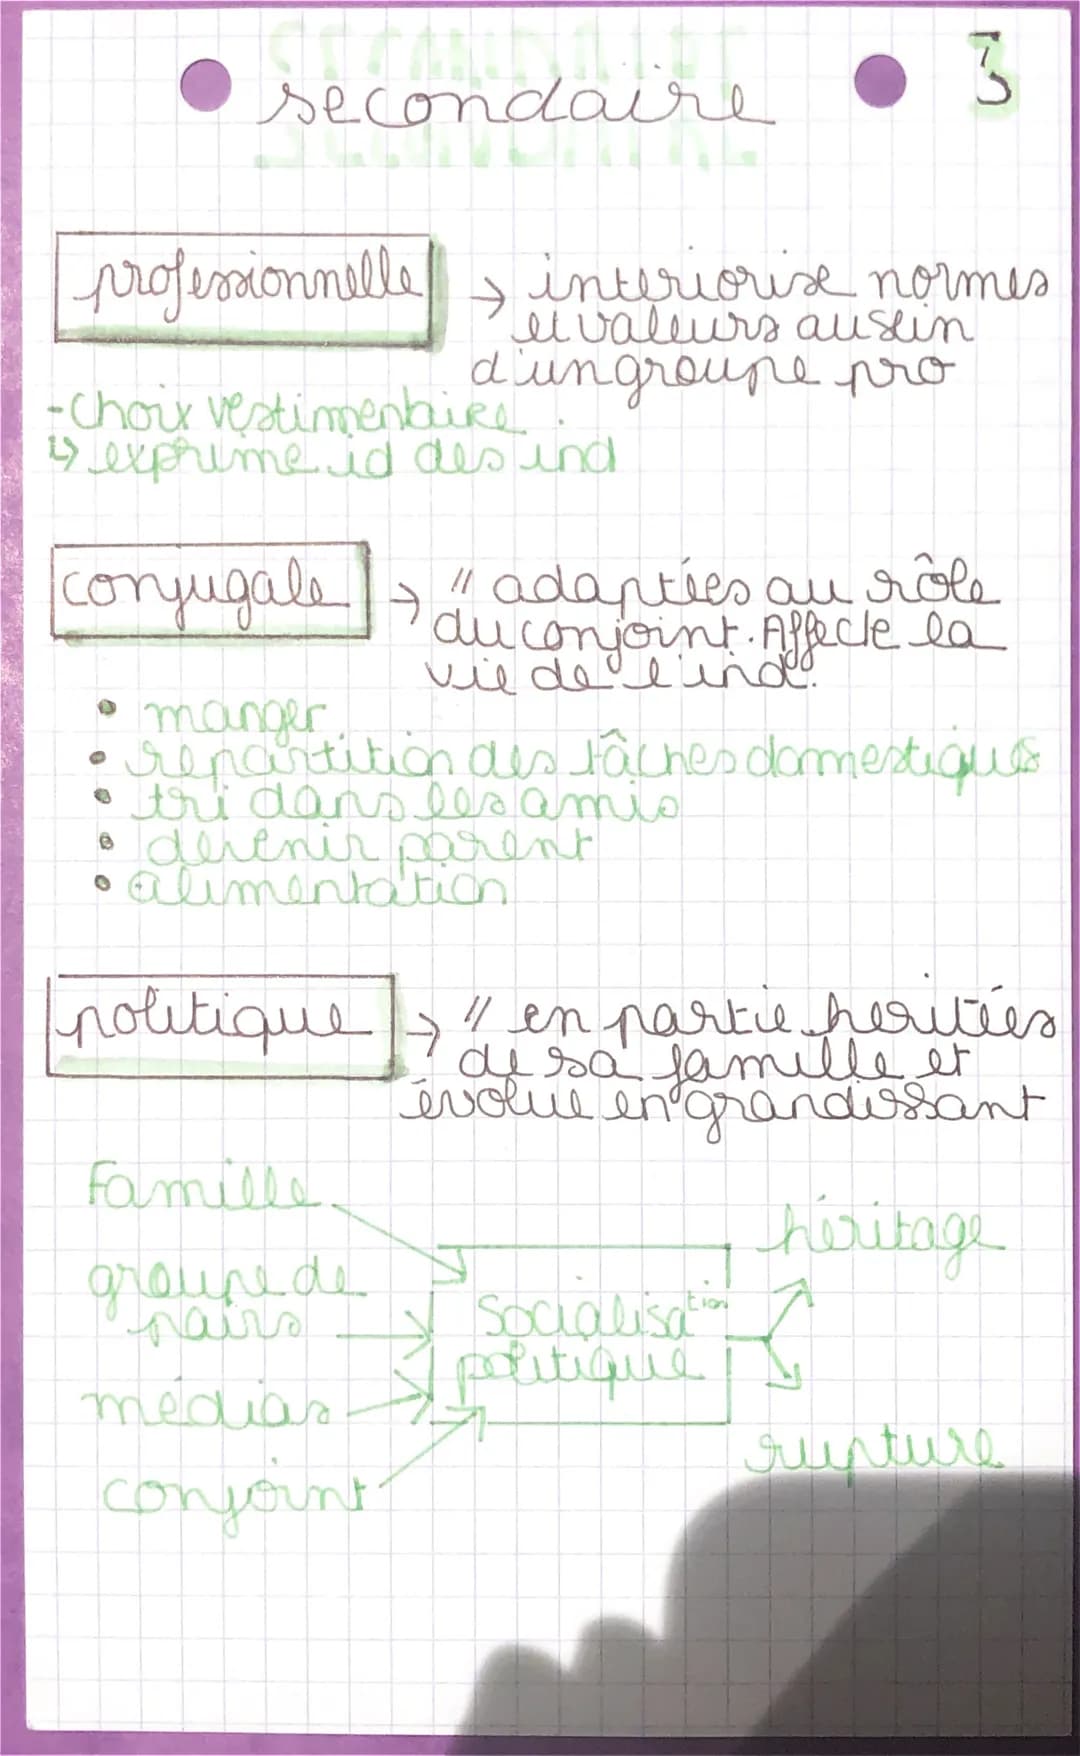 3
secondaire
professionnelle → interiorise normes
et valeurs au sein
d'un groupe pro
- Choix vestimentaire
↳ exprime id des ind
conjugale → " adaptées au rôle
du conjoint. Affecte la
vie de l'ind.
• manger
• repartition des tâches domestiques
• tri dans les amis
• devenir parent
• alimentation
politique → " en partie heritées
de sa famille et
évolue en grandissant
Famille
héritage
groupe de
pairs
Socialisation
politique
médias
rupture
conjoint